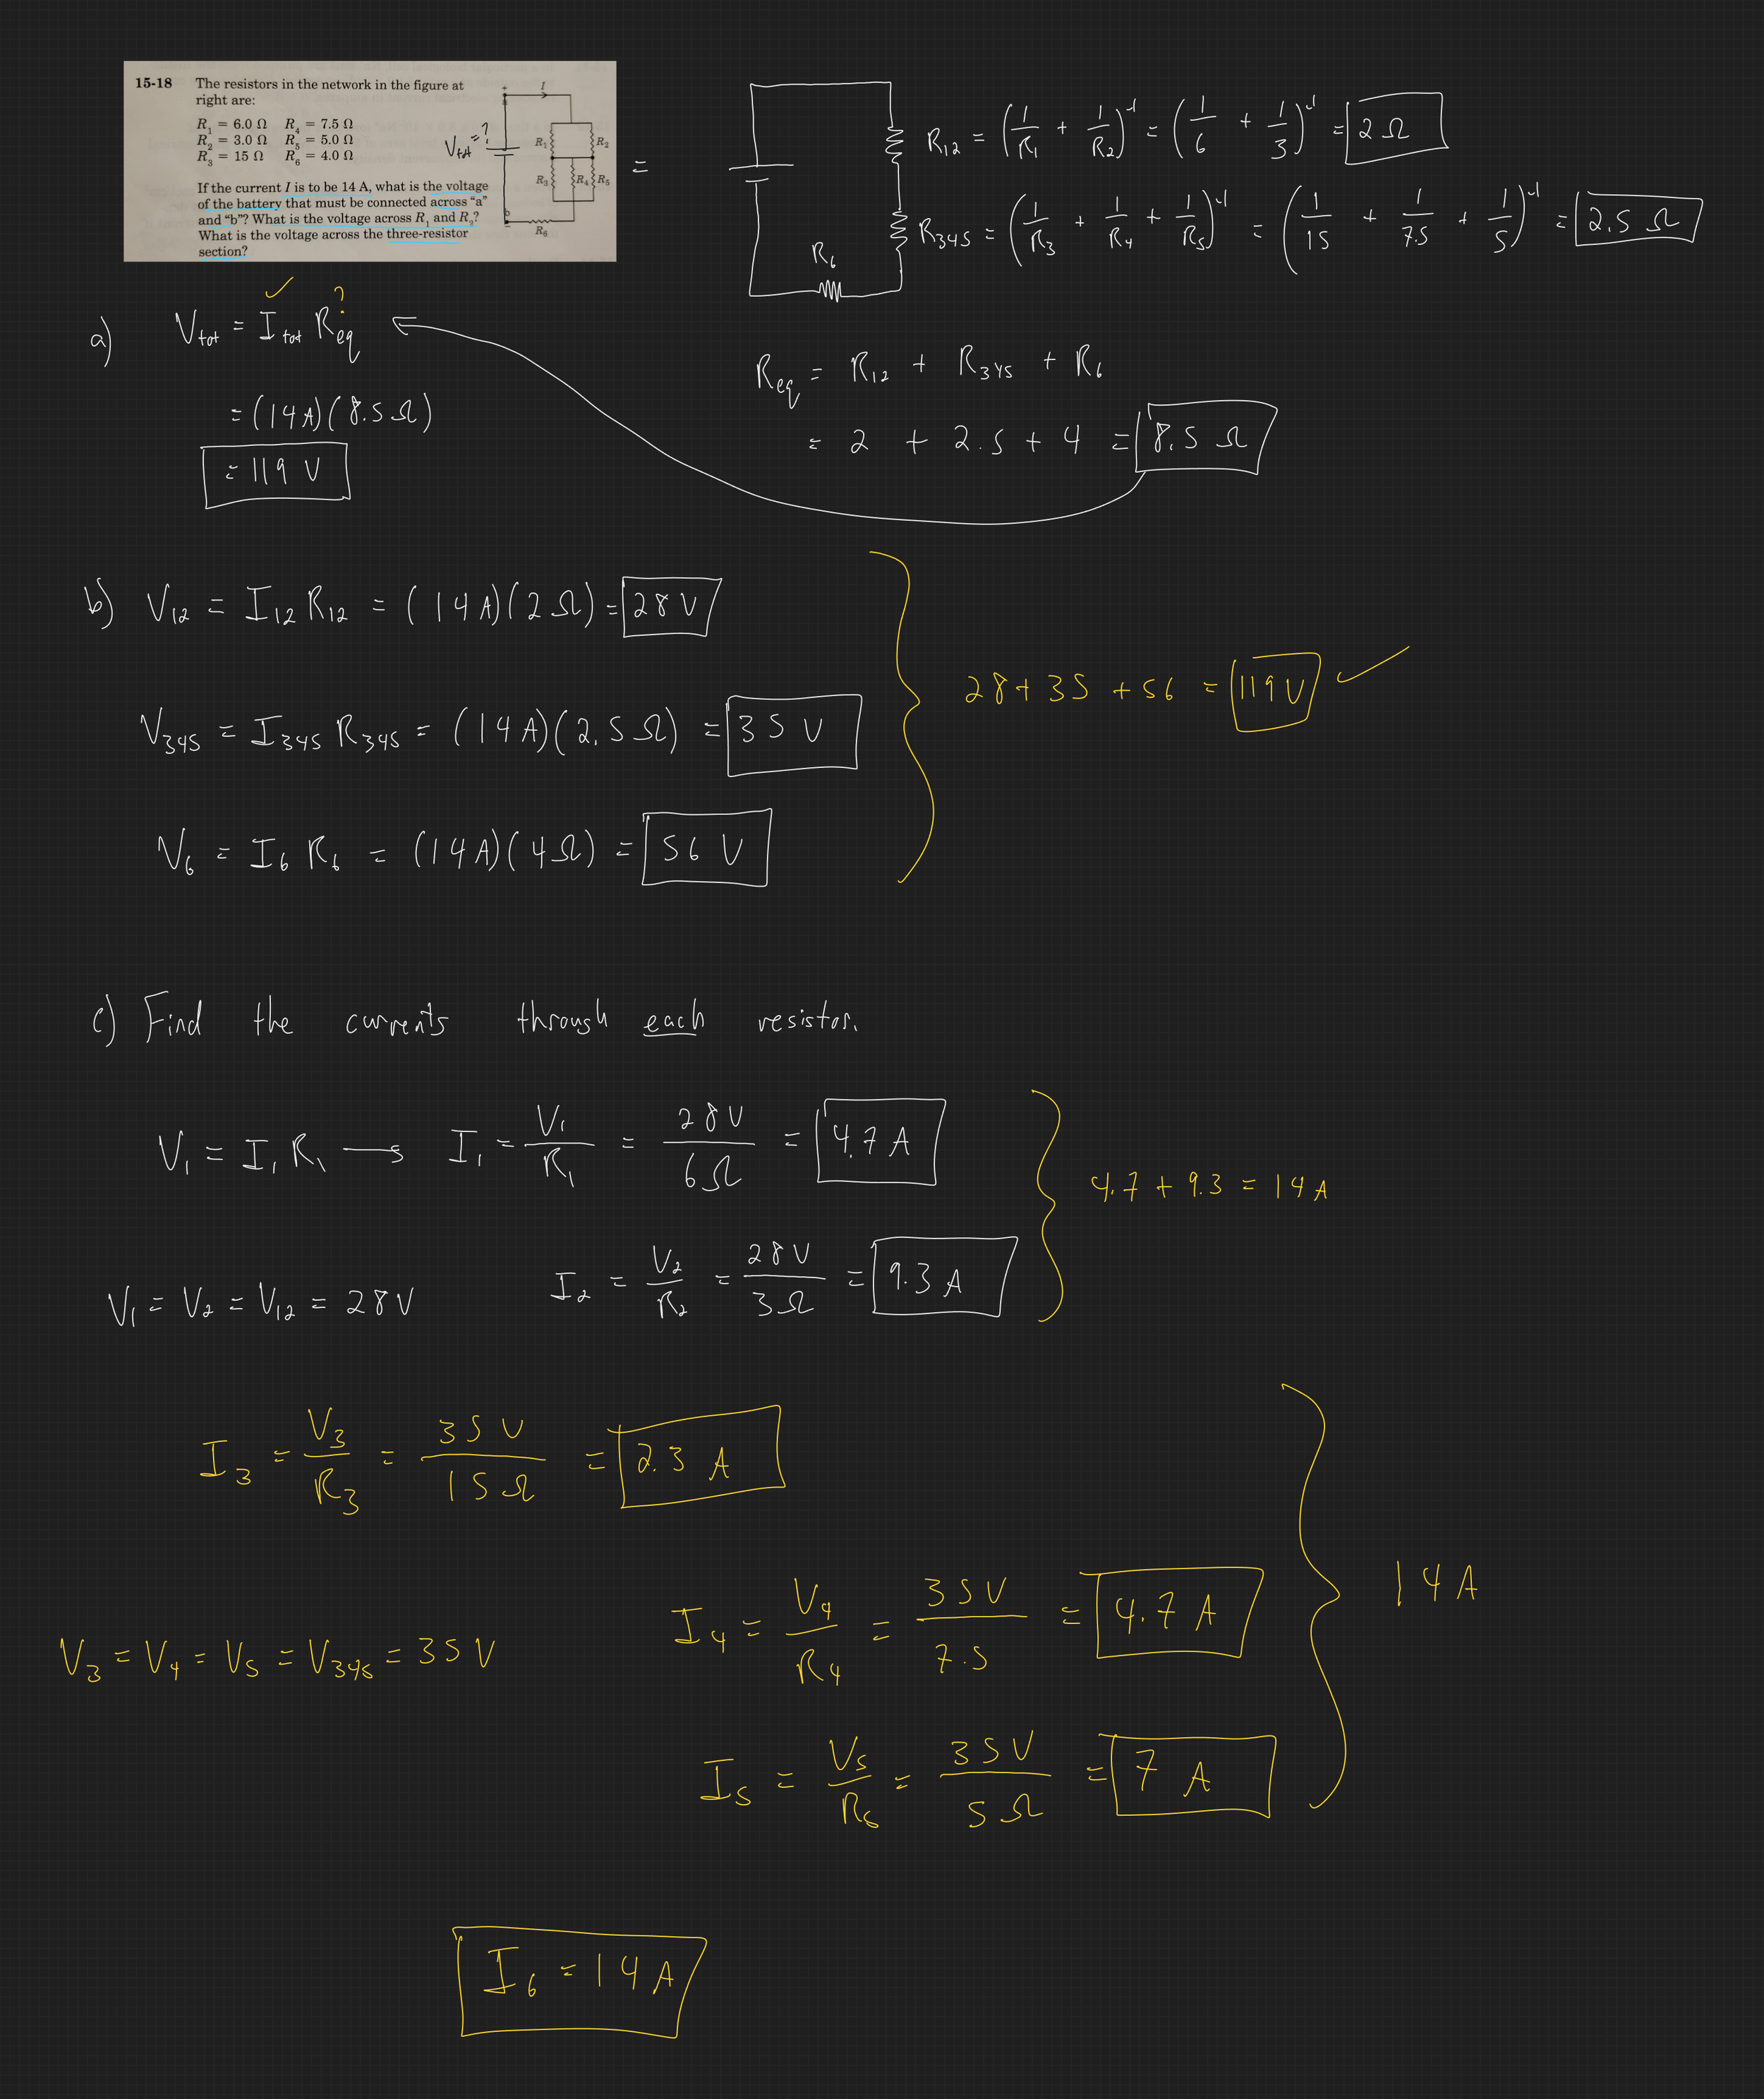 15-18 The resistors in the network in the figure at
right are:
R₁ = 6.0 Ω R₄ = 7.5 Ω
R₂ = 3.0 Ω R₅ = 5.0 Ω
R₃ = 15 Ω R₆ = 4.0 Ω
If the current I is to be 14 A, what is the voltage
of the battery that must be connected across "a"
and "b"? What is the voltage across R₁ and R₂?
What is the voltage across the three-resistor
section?
+ I
a
V_tot = ?
R₁ R₂
R₃ R₄ R₅
b
-
R₆
=
R₁₂ = (1/R₁ + 1/R₂)⁻¹ = (1/6 + 1/3)⁻¹ = 2 Ω
R₃₄₅ = (1/R₃ + 1/R₄ + 1/R₅)⁻¹ = (1/15 + 1/7.5 + 1/5)⁻¹ = 2.5 Ω
R₆
✓ ?
a) V_tot = I_tot R_eq
= (14 A)(8.5 Ω)
= 119 V
R_eq = R₁₂ + R₃₄₅ + R₆
= 2 + 2.5 + 4 = 8.5 Ω
b) V₁₂ = I₁₂ R₁₂ = (14 A)(2 Ω) = 28 V
V₃₄₅ = I₃₄₅ R₃₄₅ = (14 A)(2.5 Ω) = 35 V
V₆ = I₆ R₆ = (14 A)(4 Ω) = 56 V
28 + 35 + 56 = 119 V ✓
c) Find the currents through each resistor.
V₁ = I₁ R₁ → I₁ = V₁/R₁ = 28 V/6 Ω = 4.7 A
4.7 + 9.3 = 14 A
V₁ = V₂ = V₁₂ = 28 V
I₂ = V₂/R₂ = 28 V/3 Ω = 9.3 A
I₃ = V₃/R₃ = 35 V/15 Ω = 2.3 A
I₄ = V₄/R₄ = 35 V/7.5 = 4.7 A
14 A
V₃ = V₄ = V₅ = V₃₄₅ = 35 V
I₅ = V₅/R₅ = 35 V/5 Ω = 7 A
I₆ = 14 A